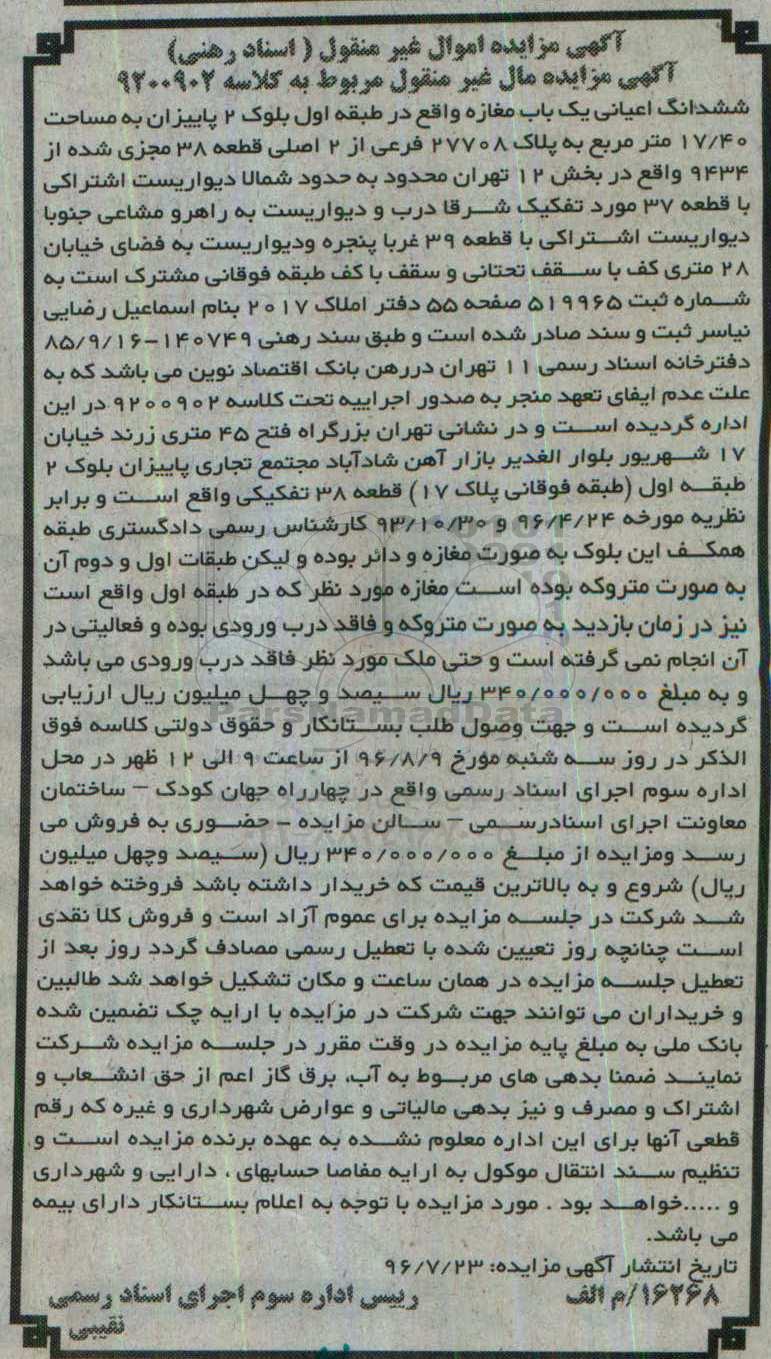 آگهی مزایده اموال غیر منقول ( اسناد رهنی)
آگهی مزایده مال غیر منقول مربوط به کلاسه ۹۲۰۰۹۰۲
ششدانگ اعیانی یک باب مغازه واقع در طبقه اول بلوک ۲ پاییزان به مساحت
۱۷/۴۰ متر مربع به پلاک ۲۷۷۰۸ فرعی از ۲ اصلی قطعه ۳۸ مجزی شده از
۹۴۳۴ واقع در بخش ۱۲ تهران محدود به حدود شمالا دیواریست اشتراکی
با قطعه ۳۷ مورد تفکیک شرقا درب و دیواریست به راهرو مشاعی جنوبا
دیواریست اشتراکی با قطعه ۳۹ غربا پنجره ودیواریست به فضای خیابان
۲۸ متری کف با سقف تحتانی و سقف با کف طبقه فوقانی مشترک است به
شماره ثبت ۵۱۹۹۶۵ صفحه ۵۵ دفتر املاک ۲۰۱۷ بنام اسماعیل رضایی
نیاسر ثبت و سند صادر شده است و طبق سند رهنی ۱۴۰۷۴۹-۸۵/۹/۱۶
دفترخانه اسناد رسمی ۱۱ تهران دررهن بانک اقتصاد نوین می باشد که به
علت عدم ایفای تعهد منجر به صدور اجراییه تحت کلاسه ۹۲۰۰۹۰۲ در این
اداره گردیده است و در نشانی تهران بزرگراه فتح ۴۵ متری زرند خیابان
۱۷ شهریور بلوار الغدیر بازار آهن شادآباد مجتمع تجاری پاییزان بلوک ۲
طبقه اول (طبقه فوقانی پلاک ۱۷) قطعه ۳۸ تفکیکی واقع است و برابر
نظریه مورخه ۹۶/۴/۲۴ و ۹۳/۱۰/۳۰ کارشناس رسمی دادگستری طبقه
همکف این بلوک به صورت مغازه و دائر بوده و لیکن طبقات اول و دوم آن
به صورت متروکه بوده است مغازه مورد نظر که در طبقه اول واقع است
نیز در زمان بازدید به صورت متروکه و فاقد درب ورودی بوده و فعالیتی در
آن انجام نمی گرفته است و حتی ملک مورد نظر فاقد درب ورودی می باشد
و به مبلغ ۳۴۰/۰۰۰/۰۰۰ ریال سیصد و چهل میلیون ریال ارزیابی
گردیده است و جهت وصول طلب بستانکار و حقوق دولتی کلاسه فوق
الذکر در روز سه شنبه مورخ ۹۶/۸/۹ از ساعت ۹ الی ۱۲ ظهر در محل
اداره سوم اجرای اسناد رسمی واقع در چهارراه جهان کودک – ساختمان
معاونت اجرای اسنادرسمی – سالن مزایده - حضوری به فروش می
رسد ومزایده از مبلغ ۳۴۰/۰۰۰/۰۰۰ ریال (سیصد وچهل میلیون
ریال) شروع و به بالاترین قیمت که خریدار داشته باشد فروخته خواهد
شد شرکت در جلسه مزایده برای عموم آزاد است و فروش کلا نقدی
است چنانچه روز تعیین شده با تعطیل رسمی مصادف گردد روز بعد از
تعطیل جلسه مزایده در همان ساعت و مکان تشکیل خواهد شد طالبین
و خریداران می توانند جهت شرکت در مزایده با ارایه چک تضمین شده
بانک ملی به مبلغ پایه مزایده در وقت مقرر در جلسه مزایده شرکت
نمایند ضمنا بدهی های مربوط به آب، برق گاز اعم از حق انشعاب و
اشتراک و مصرف و نیز بدهی مالیاتی و عوارض شهرداری و غیره که رقم
قطعی آنها برای این اداره معلوم نشده به عهده برنده مزایده است و
تنظیم سند انتقال موکول به ارایه مفاصا حسابهای ، دارایی و شهرداری
و .....خواهد بود . مورد مزایده با توجه به اعلام بستانکار دارای بیمه
می باشد.
تاریخ انتشار آگهی مزایده: ۹۶/۷/۲۳
۱۶۲۶۸/م الف رییس اداره سوم اجرای اسناد رسمی
نقیبی
ParsNamadData